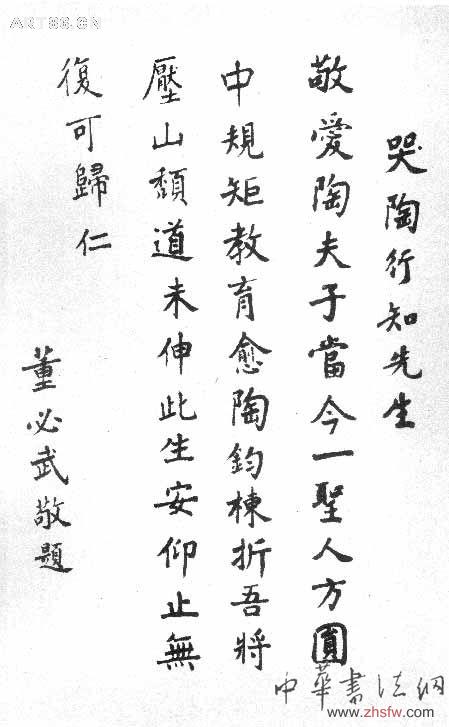 ART86.CN
哭陶行知先生
敬愛陶夫子當今一聖人方圓
中規矩教育愈陶鈞棟折吾將
壓山頹道未伸此生安仰止無
復可歸仁
董必武敬題
中華書法網
www.zhsfw.com